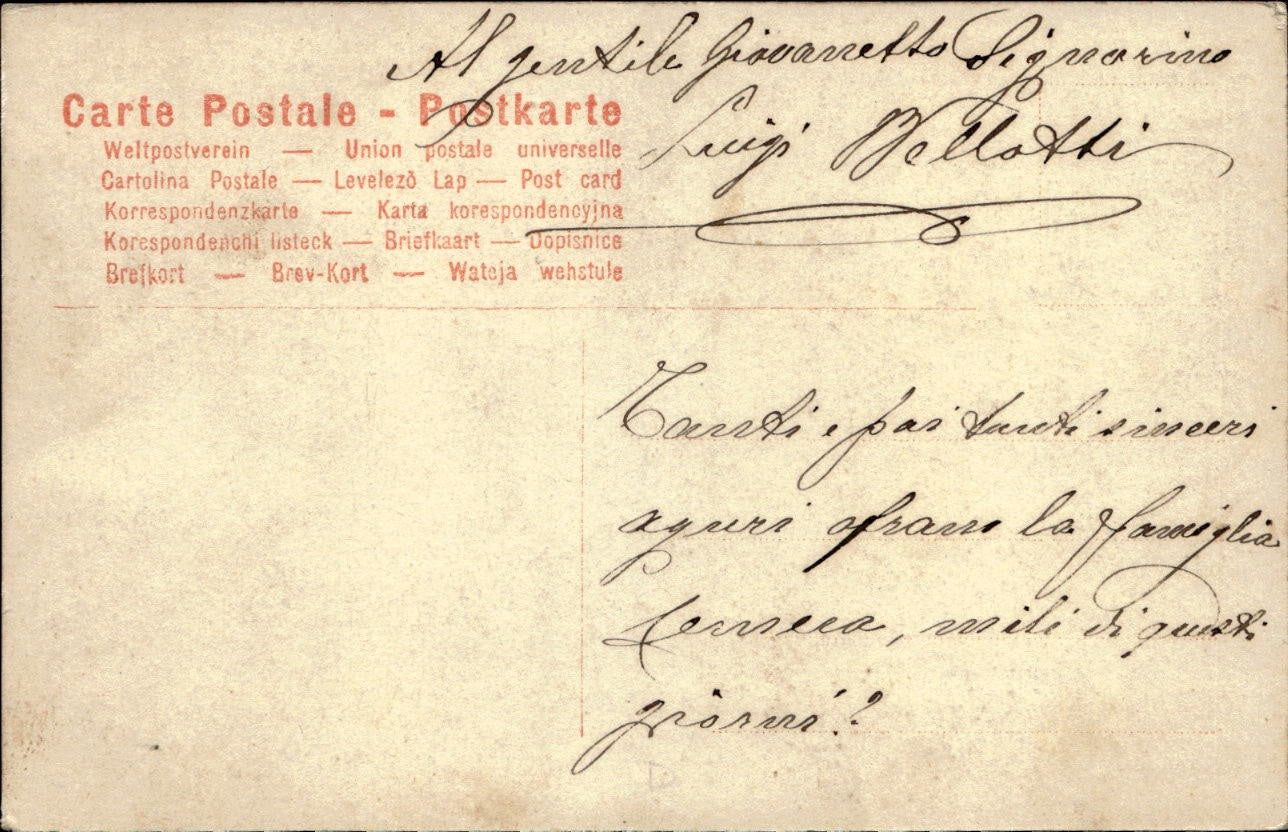 Al gentile Giovanetto Signorino
Luigi Bellotti
Carte Postale - Postkarte
Weltpostverein — Union postale universelle
Cartolina Postale — Levelezŏ Lap — Post card
Korrespondenzkarte — Karta korespondencyjna
Korespondenchi listeck — Briefkaart — Dopisnice
Brefkort — Brev-Kort — Wateja wehstule
Tanti e poi tanti sinceri
aguri ofrano la Famiglia
mili di questi
giorni!